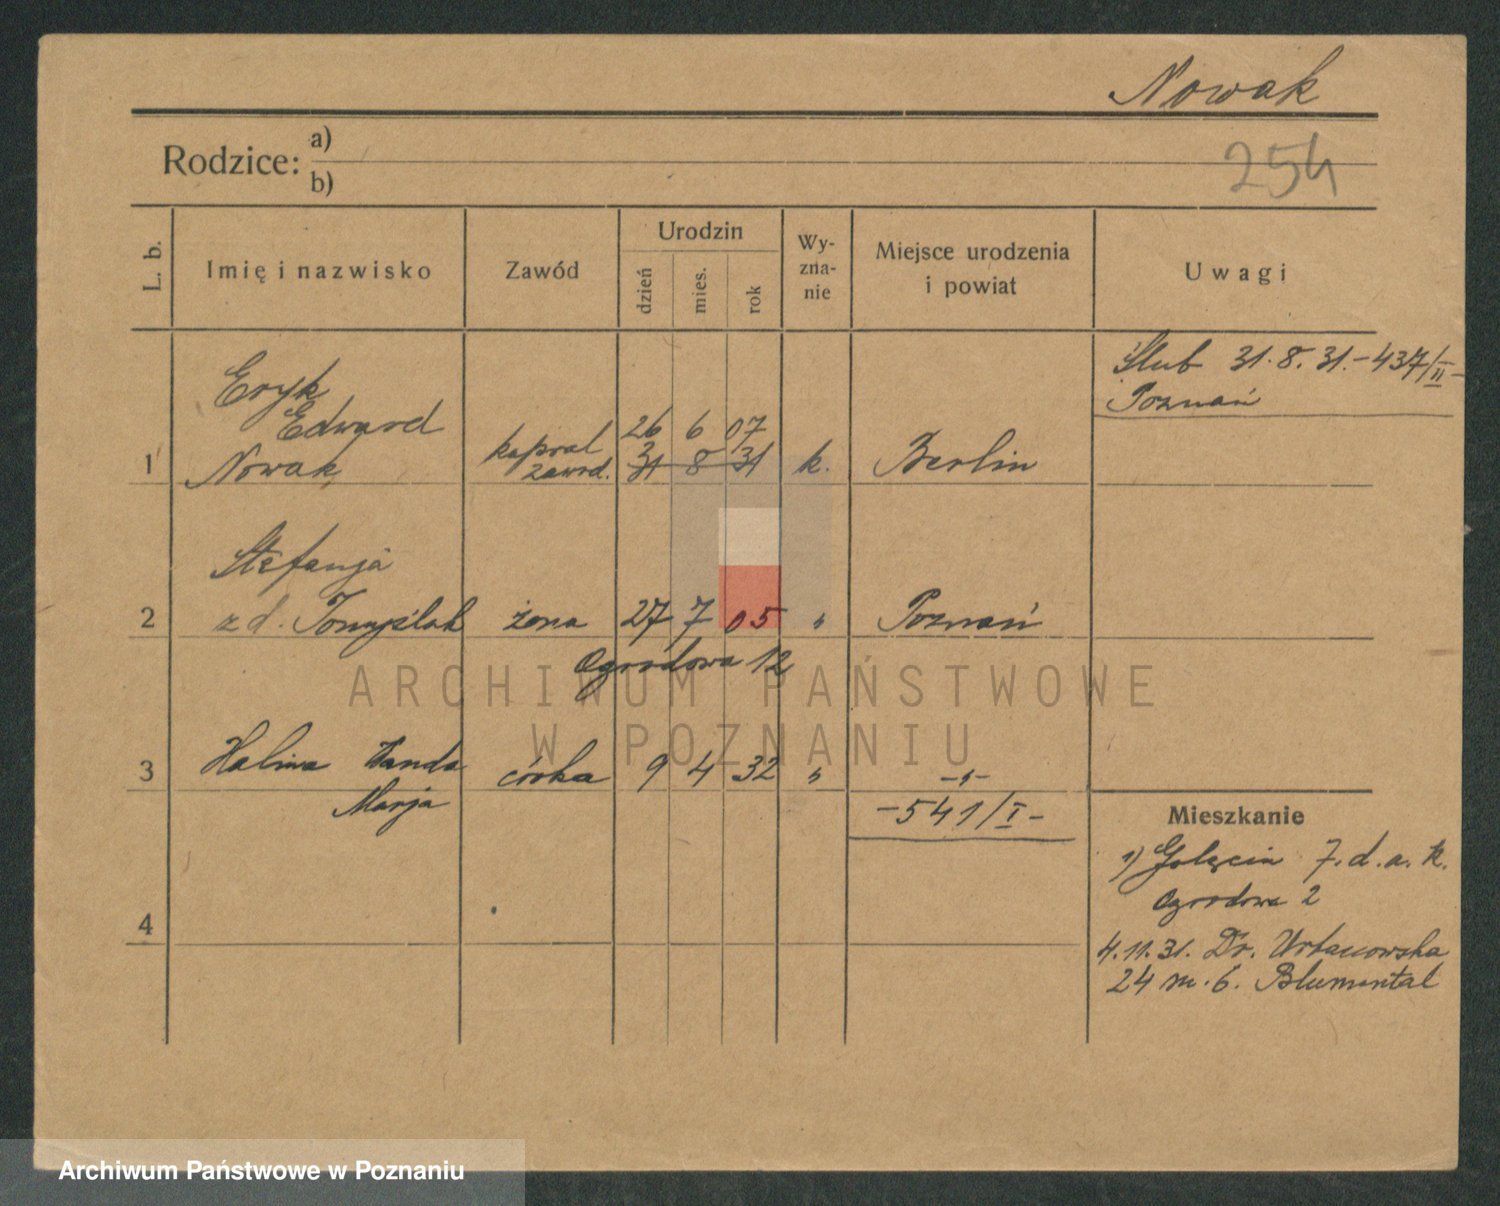 Nowak
Rodzice: a)
b)
254
L. b.
Imię i nazwisko
Zawód
Urodzin
dzień
mies.
rok
Wy-
zna-
nie
Miejsce urodzenia
i powiat
Uwagi
Ślub 31.8.31.-437/II-
Poznań
Eryk
Edward
26 6 07
1 Nowak kapral zawod. 31 8 31 k. Berlin
Stefanja
2 z d. Tomyślak żona 27 7 05 " Poznań
Ogrodowa 12
3 Halina Wanda córka 9 4 32 " -"-
Marja
-541/I-
Mieszkanie
1) Golęcin 7. d. a. k.
Ogrodowa 2
4
4.11.31. Dr. Urbanowska
24 m. 6. Blumental
ARCHIWUM PAŃSTWOWE
W POZNANIU
Archiwum Państwowe w Poznaniu